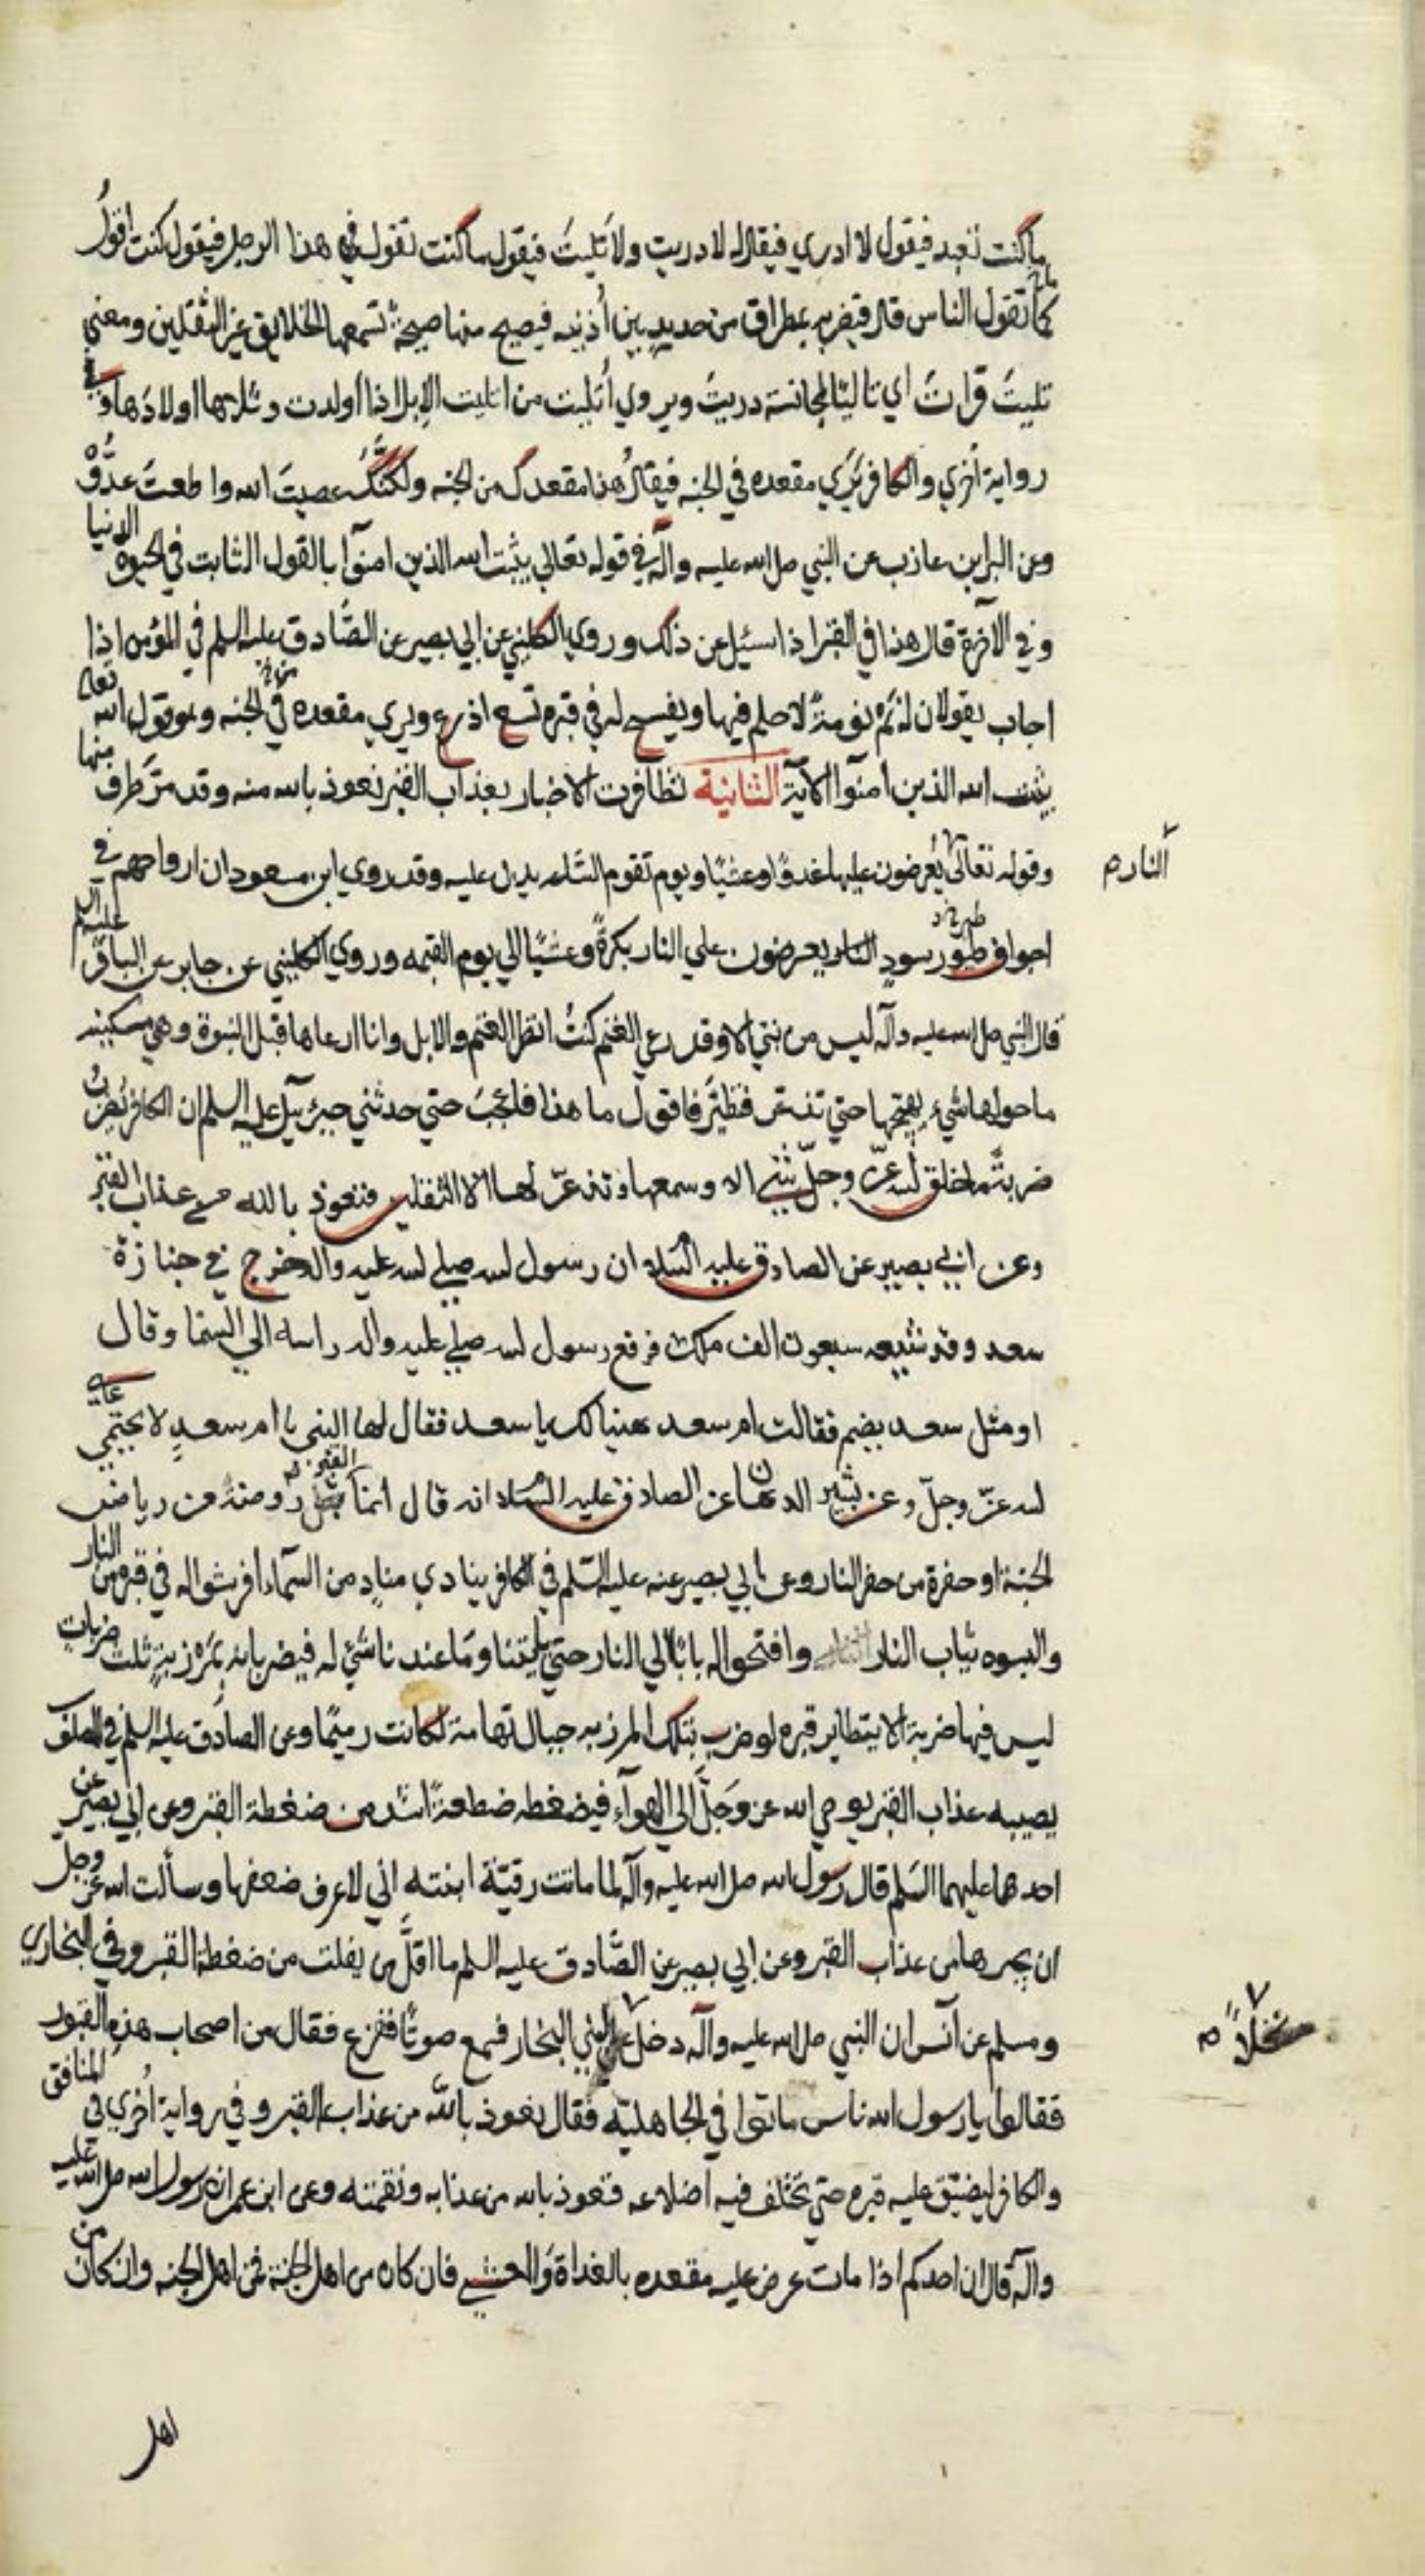 ما كنت تعبد فيقول لا ادري فيقال له لا دريت ولا تليتَ فيقول ما كنت تقول في هذا الرجل فيقول كنت اقولُ
كما تقول الناس قال فيضربه بمطراق من حديدٍ بين أُذنيه فيصيح منها صيحةً تسمعها الخلايق غير الثقلين ومعني
تليتَ قراتَ اي تاليًا لمجانسة دريتَ ويروي أُتليت من اتليت الإبل اذا أولدت وتلاها اولادُها وفي
رواية أخري والكافر يَرَي مقعده في الجنه فيقالُ هذا مقعدك من الجنه ولكنَّكَ عصيتَ الله واطعتَ عدُوَّهُ
وعن البرا بن عازب عن النبي صل الله عليه وآله في قوله تعالي يثبت الله الذين امنوا بالقول الثابت في الحيوة الدنيا
وفي الآخرة قال هذا في القبر اذا سئيل عن ذلك وروي الكليني عن ابي بصير عن الصَّادق عليه السلم في المؤمن اذا
اجاب يقولان له نَمْ نومةً لا حلم فيها ويفسح له في قبره تسع اذرع ويري مقعده في الجنه وهو قول الله تعالي
يثبت الله الذين امنوا الآية الثانية تظافرت الاخبار بعذاب القبر نعوذ بالله منه وقد مرّ طرف منها
وقوله تعالي يُعرضون عليها غدوًّا وعشيًّا ويوم تقوم السَّاعه يدل عليه وقد روي ابن مسعود ان ارواحهم في
النار م
اجواف طيور سودٍ يعرضون علي النار بكرةً وعشيًّا الي يوم القيمه وروي الكليني عن جابر عن الباقر عليه السلم
قال النبي صل الله عليه وآله ليس من نبيّ الا وقد رعي الغنم كنتُ انظر الغنم والابل وانا ارعاها قبل النبوة وهي متمكنه
ما حولها شيء يهيّجها حتي تذعر فتطير فاقول ما هذا فاعجبُ حتي حدثني جبرئيل عليه السلم ان الكافر يُضربُ
ضربةً ما خلق الله عزّ وجلّ شيئ الا وسمعها وتذعرّ لها الا الثقلين فنعوذ بالله من عذاب القبر
وعن ابي بصير عن الصادق عليه السلام ان رسول الله صلي الله عليه واله خرج في جنازة
سعد وقد شيعه سبعون الف ملك فرفع رسول الله صلي عليه واله راسه الي السما وقال
او مثل سعد يضم فقالت ام سعد هنيا لك يا سعد فقال لها النبي يا ام سعدٍ لا تحتمي علي
الله عزّ وجلّ وعن بشير الدهان عن الصادق عليه السلام انه قال انما القبر روضة من رياض
الجنة او حفرة من حفر النار وعن ابي بصير عنه عليه السّلم في الكافر ينادي منادٍ من السّماء افرشوا له في قبره من النار
والبسوه ثياب النار وافتحوا له بابًا الي النار حتي ياتينا وما عندنا شئ له فيضربانه بمرزبةٍ ثلث ضربات
ليس فيها ضربة الا يتطاير قبره لو ضرب بتلك المرزبه جبال تهامة لكانت رميمًا وعن الصادق عليه السلم في المصلوب
يصيبه عذاب القبر يوحي الله عز وجَلَّ الي الهوآء فيضغطه ضغطةً اشد من ضغطة القبر وعن ابي بصير عن
احدهما عليهما السّلم قال رسول الله صل الله عليه وآله لما ماتت رقيّة ابنته اني لاعرف ضعفها وسألت الله عز وجل
ان يجيرها من عذاب القبر وعن ابي بصير عن الصَّادق عليه السلم ما اقلَّ من يفلت من ضغطة القبر وفي البخاري
ومسلم عن أنس ان النبي صل الله عليه وآله دخل لبني النجار فسمع صوتًا ففزع فقال من اصحاب هذه القبور
نخلاً م
فقالوا يا رسول الله ناس ماتوا في الجاهليّه فقال نعوذ بالله من عذاب القبر وفي رواية أخري في المنافق
والكافر ليضيّق عليه قبره حتي تختلف فيه اضلاعه فنعوذ بالله من عذابه ونقمته وعن ابن عمر ان رسول الله صل الله عليه
وآله قال ان احدكم اذا مات عرض عليه مقعده بالغداة والعشي فان كان من اهل الجنة فمن اهل الجنه وان كان من
اهل